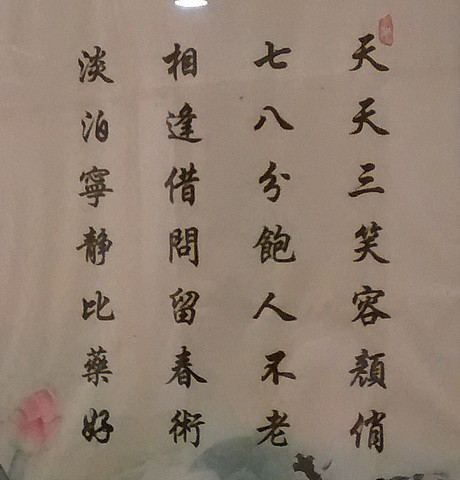 天天三笑容顏俏
七八分飽人不老
相逢借問留春術
淡泊寧靜比藥好